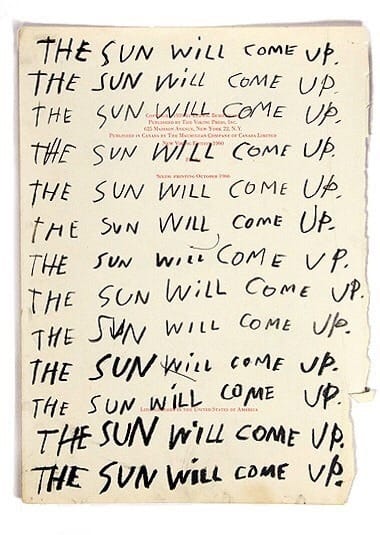 THE SUN WILL COME UP.
THE SUN WILL COME UP.
THE SUN WILL COME UP.
Published by The Viking Press, Inc.
625 Madison Avenue, New York 22, N.Y.
Published in Canada by The Macmillan Company of Canada Limited
THE SUN WILL COME UP.
Sixth printing October 1966
THE SUN WILL COME UP.
THE SUN WILL COME UP.
THE SUN WILL COME UP.
THE SUN WILL COME UP.
THE SUN WILL COME UP.
THE SUN WILL COME UP.
THE SUN WILL COME UP.
in the United States of America
THE SUN WILL COME UP.
THE SUN WILL COME UP.